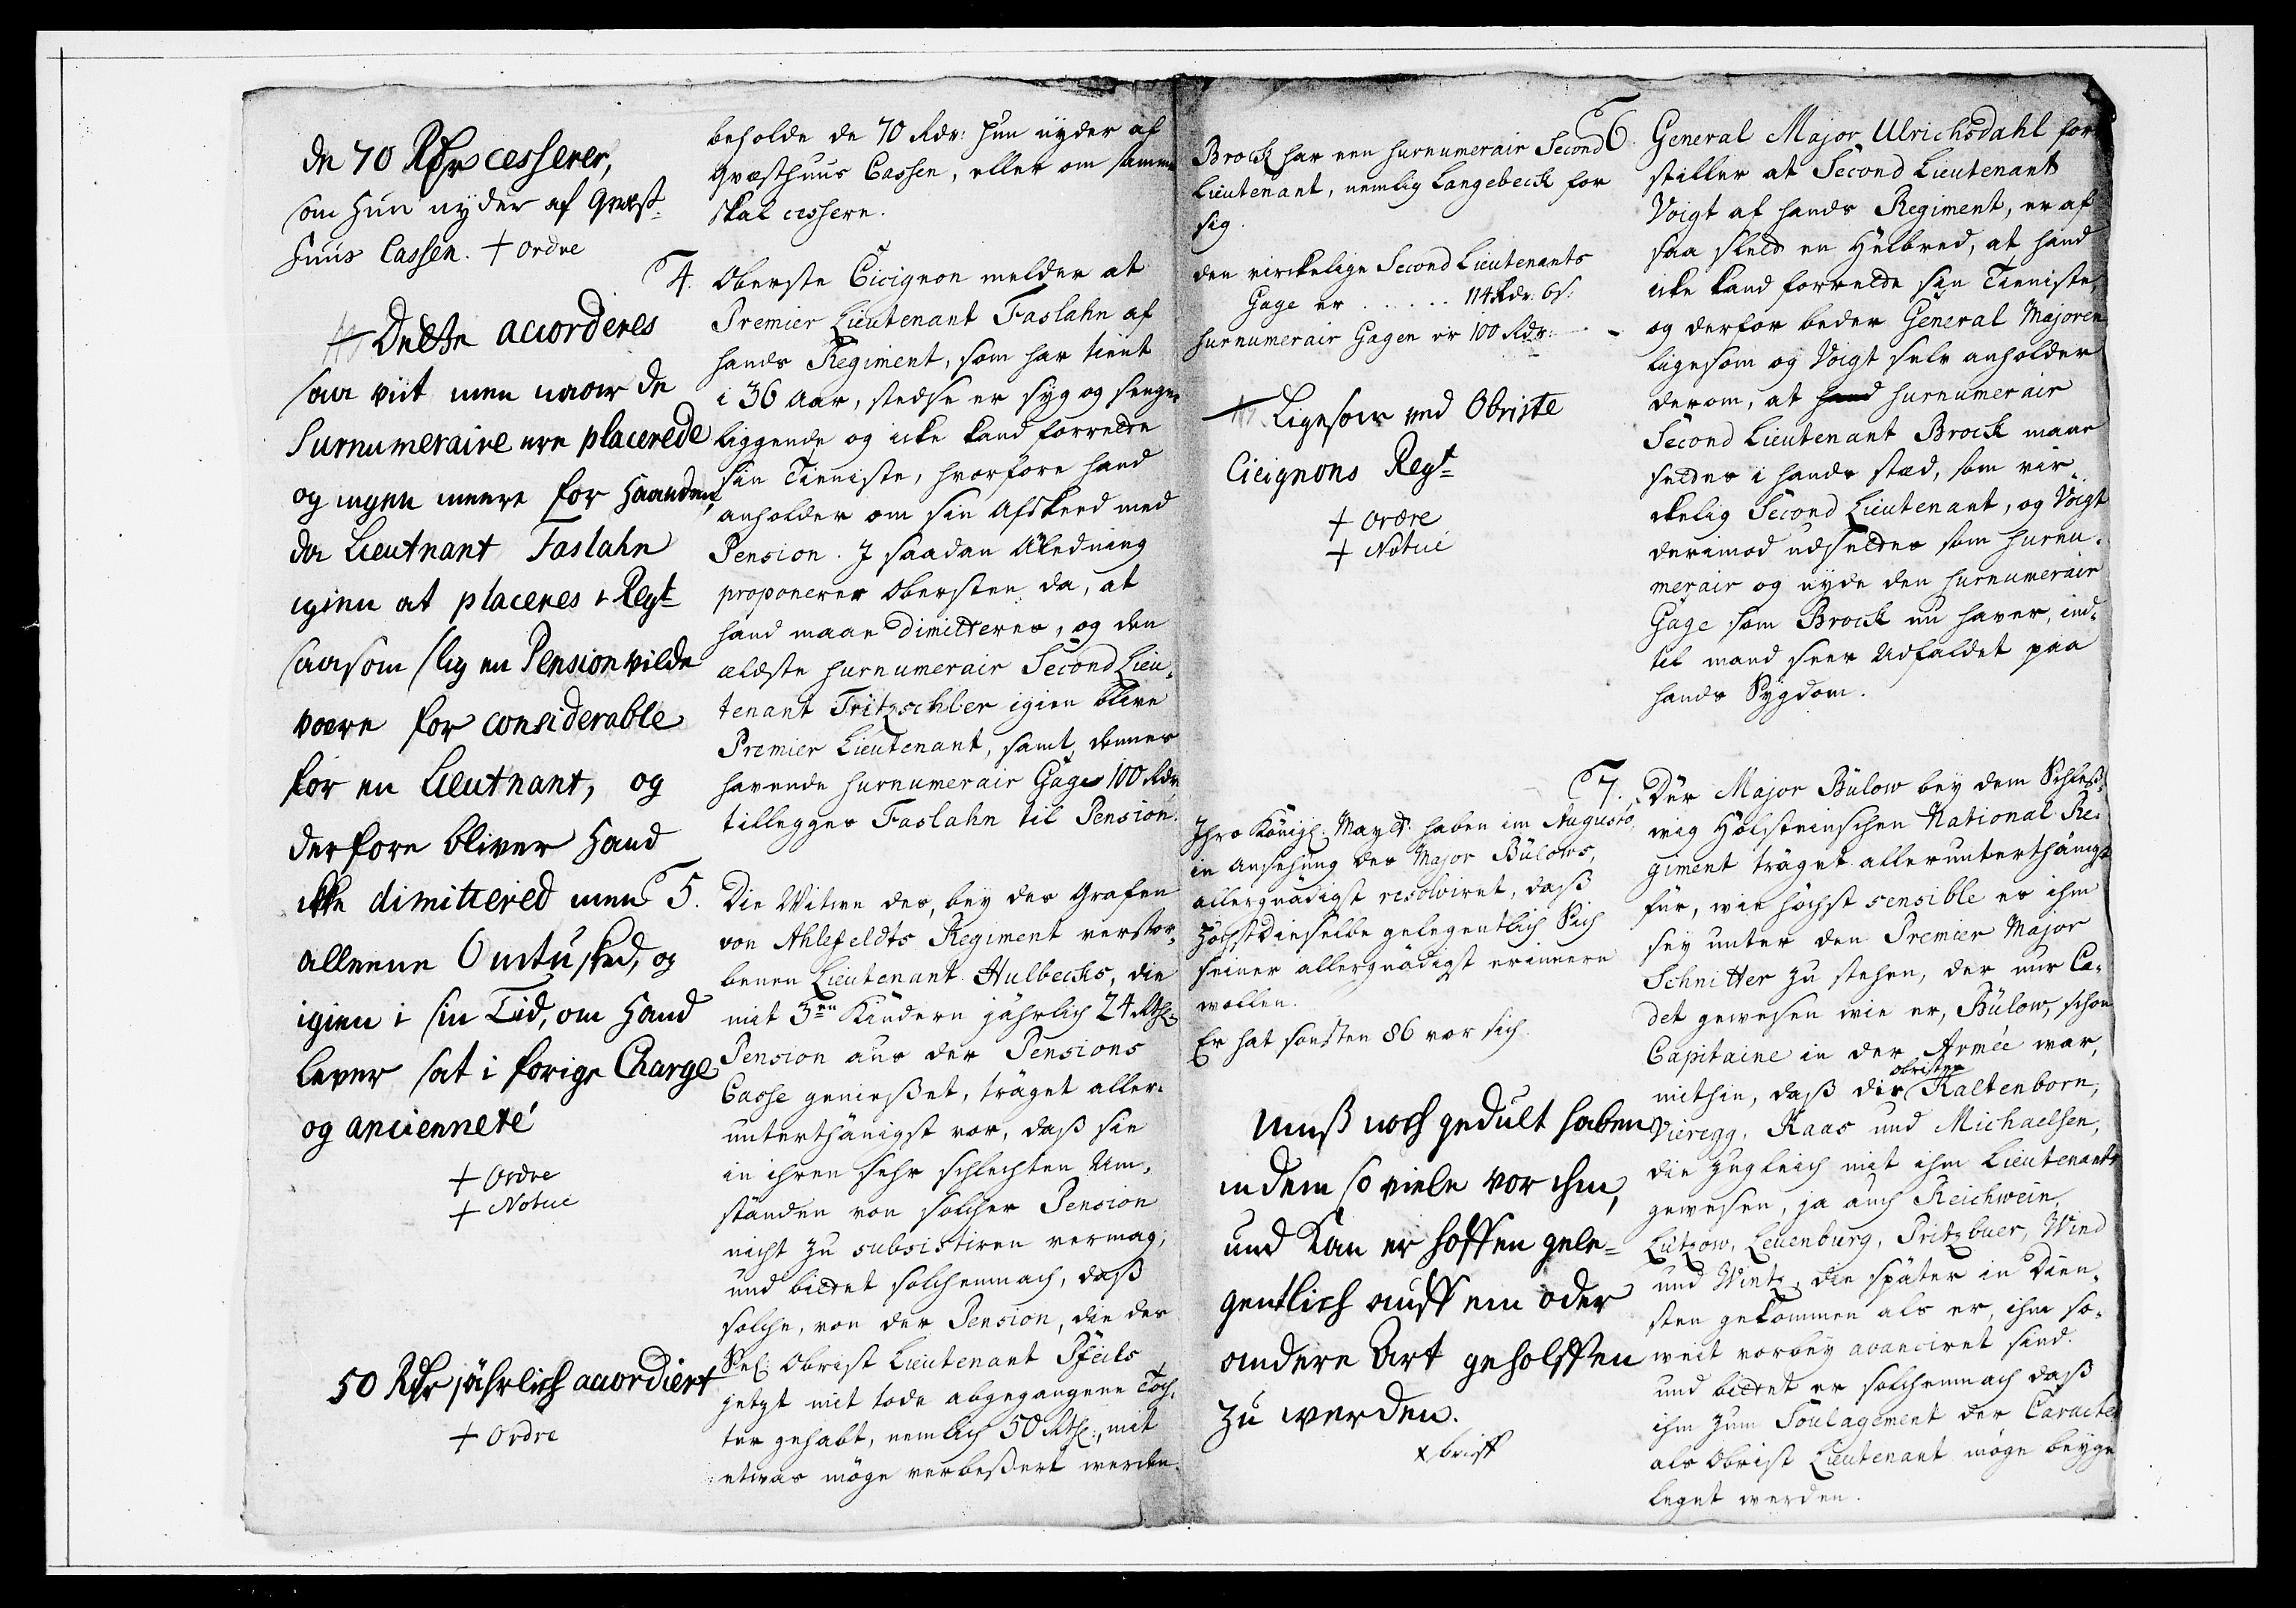 de 70 Rdr cesserer,
som Hun nyder af Qvæst-
Huus Cassen. + Ordre
+ Dette accorderes
saa viit men naar de
Surnumeraire ere placerede
og ingen meere for Haanden,
da Lieutnant Faslahn
igien at placeres v Regt
saasom slig en Pension vilde
være for considerable
for en Lieutnant, og
derfore bliver Hand
ikke dimittered men
alleene Omtusked, og
igien i sin Tid, om Hand
lever sat i forige Charge
og ancienneté
+ Ordre
+ Notice
50 Rdr jährlich accordiert
+ Ordre
beholde de 70 Rdr: hun nyder af
Qvæsthuus Cassen, eller om samme
skal cessere.
4. Oberste Cicignon melder at
Premier Lieutenant Faslahn af
hands Regiment, som har tient
i 36 Aar, stedse er syg og senge-
liggende og icke kand forrette
sin Tieniste, hvorfore hand
anholder om sin Afskeed med
Pension. I saadan Anledning
proponerer Obersten da, at
hand maae dimitteres, og den
ældste surnumerair Second Lieu-
tenant Fritzschler igien blive
Premier Lieutenant, samt dennes
havende surnumerair Gage 100 Rdr
tillegges Faslahn til Pension.
5. Die Witwe des, bey des Grafen
von Ahlefeldts Regiment verstor-
benen Lieutenant Hulbecks, die
mit 3en Kindern jährlich 24 Rthl:
Pension aus der Pensions
Casse genießet, träget aller-
unterthänigst vor, daß sie
in ihren sehr schlechten Um-
ständen von solcher Pension
nicht zu subsistiren vermag,
und bittet solchemnach, daß
solche, von der Pension, die des
Sel: Obrist Lieutenant Pfeils
jetzt mit tode abgegangene Toch-
ter gehabt, nemlich 50 Rthl:, mit
etwas möge verbeßert werden.
Brock har een surnumerair Second
Lieutenant, nemlig Langebeck for
sig.
den virkelige Second Lieutenants
Gage er . . . . . . 114 Rdr: 6 s:
surnumerair Gagen er 100 Rdr: -
+ Ligesaa ved Obriste
Cicignons Regt
+ Ordre
+ Notice
Ihro Königl: Mayt: haben im Augusto,
in Ansehung des Major Bülows,
allergnädigst resolviret, daß
Höchst Dieselbe gelegentlich Sich
seiner allergnädigst erinnern
wollen.
Er hat sonsten 86 vor sich.
Muß noch gedult haben
indem so viele vor ihm,
und Kan er hoffen gele-
gentlich auff ein oder
andere Art geholffen
zu werden.
x brieff
6. General Major Ulrichsdahl fore
stiller at Second Lieutenant
Voigt af hands Regiment, er af
saa slett en Helbred, at hand
icke kand forrette sin Tieniste,
og derfor beder General Majoren
ligesom og Voigt selv anholder
derom, at hand surnumerair
Second Lieutenant Brock maae
settes i hands stæd, som vir-
ckelig Second Lieutenant, og Voigt
derimod udsettes som surnu-
merair og nyde den surnumerair
Gage som Brock nu haver, ind-
til mand seer Udfaldet paa
hands Sygdom.
7. Der Major Bülow bey dem Schleß-
wig Holsteinschen National Re-
giment träget allerunterthänigst
für, wie höchst sensible es ihm
sey unter den Premier Major
Schnitter zu stehen, der nur Ca-
det gewesen wie er, Bülow, schon
Capitaine in der Armée war,
obristen
mithin, daß die Kaltenborn,
Vieregg, Kaas und Michaelsen,
die zugleich mit ihm Lieutenants
gewesen, ja auch Reichwein,
Lützow, Leuenburg, Pritzbuer, Wind
und Wintz, die später in Dien-
sten gekommen als er, ihm so-
weit vorbey avanciret sind.
und bittet er solchemnach daß
ihm zum Soulagement der Caracter
als Obrist Lieutenant möge beyge
leget werden.